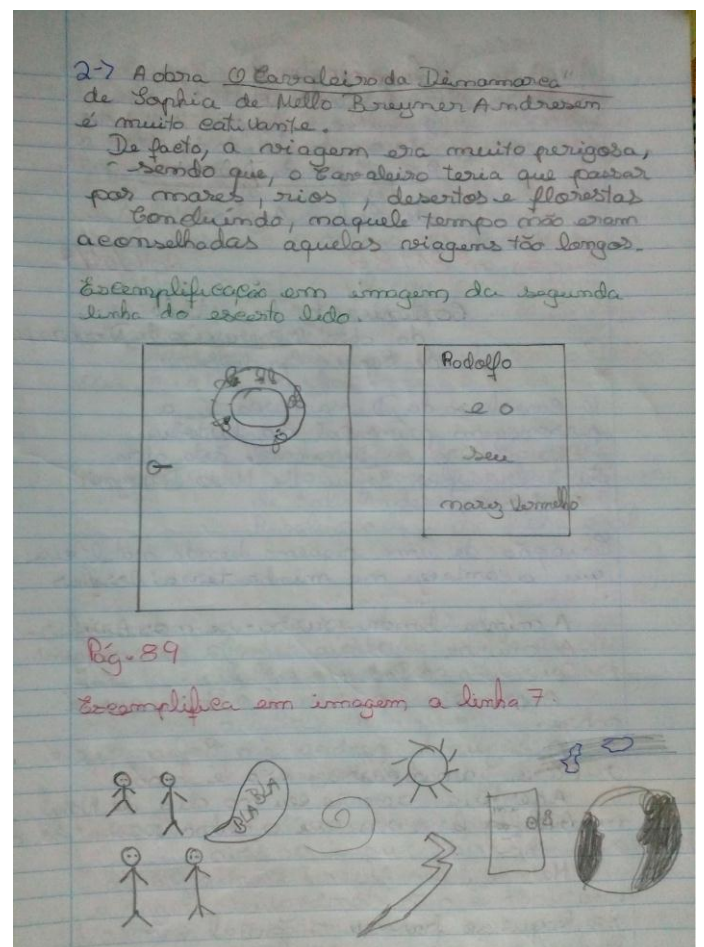 2-> A obra O Cavaleiro da Dinamarca"
de Sophia de Mello Breyner Andresen
é muito cativante.
De facto, a viagem era muito perigosa,
sendo que, o Cavaleiro teria que passar
por mares, rios, desertos e florestas
Concluindo, naquele tempo não eram
aconselhadas aquelas viagens tão longas.
Excemplificação em imagem da segunda
linha do excerto lido.
Rodolfo
e o
seu
nariz Vermelho
Pág. 89
Excemplifica em imagem a linha 7.
BLA BLA